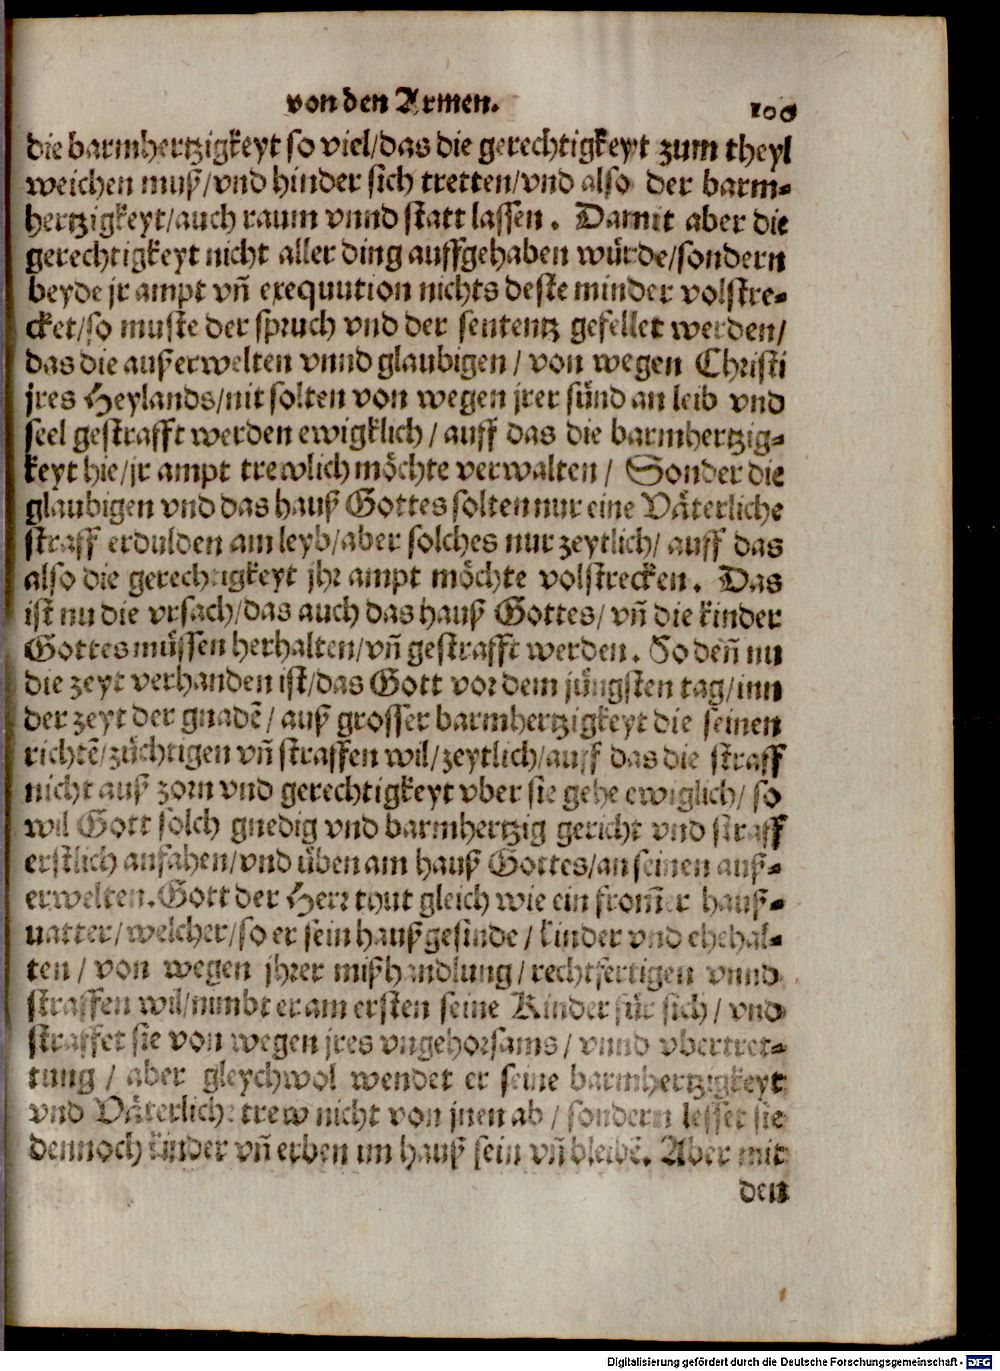 von den Armen. 100
die barmhertzigkeyt so viel/das die gerechtigkeyt zum theyl
weichen muß/vnd hinder sich tretten/vnd also der barm-
hertzigkeyt/auch raum vnnd statt lassen. Damit aber die
gerechtigkeyt nicht aller ding auffgehaben würde/sondern
beyde jr ampt vñ exequution nichts deste minder volstre-
cket/so muste der spruch vnd der sententz gefellet werden/
das die außerwelten vnnd glaubigen/ von wegen Christi
jres Heylands/nit solten von wegen jrer sünd an leib vnd
seel gestrafft werden ewigklich/ auff das die barmhertzig-
keyt hie/jr ampt trewlich möchte verwalten/ Sonder die
glaubigen vnd das hauß Gottes solten nur eine Väterliche
straff erdulden am leyb/aber solches nur zeytlich/ auff das
also die gerechtigkeyt jhr ampt möchte volstrecken. Das
ist nu die vrsach/das auch das hauß Gottes/ vñ die kinder
Gottes müssen herhalten/vñ gestrafft werden. So deñ nu
die zeyt verhanden ist/das Gott vor dem jüngsten tag/inn
der zeyt der gnadẽ/ auß grosser barmhertzigkeyt die seinen
richtẽ/züchtigen vñ straffen wil/zeytlich/auff das die straff
nicht auß zorn vnd gerechtigkeyt vber sie gehe ewiglich/ so
wil Gott solch gnedig vnd barmhertzig gericht vnd straff
erstlich anfahen/vnd üben am hauß Gottes/an seinen auß-
erwelten. Gott der Herr thut gleich wie ein from̃er hauß-
uatter/welcher/so er sein haußgesinde/ kinder vnd ehehal-
ten/ von wegen jhrer mißhandlung/ rechtfertigen vnnd
straffen wil/nimbt er am ersten seine Kinder für sich/ vnd
straffet sie von wegen jres vngehorsams/ vnnd vbertret-
tung/ aber gleychwol wendet er seine barmhertzigkeyt
vnd Väterliche trew nicht von jnen ab/ sondern lesset sie
dennoch kinder vñ erben im hauß sein vñ bleibẽ. Aber mit
den
Digitalisierung gefördert durch die Deutsche Forschungsgemeinschaft - DFG